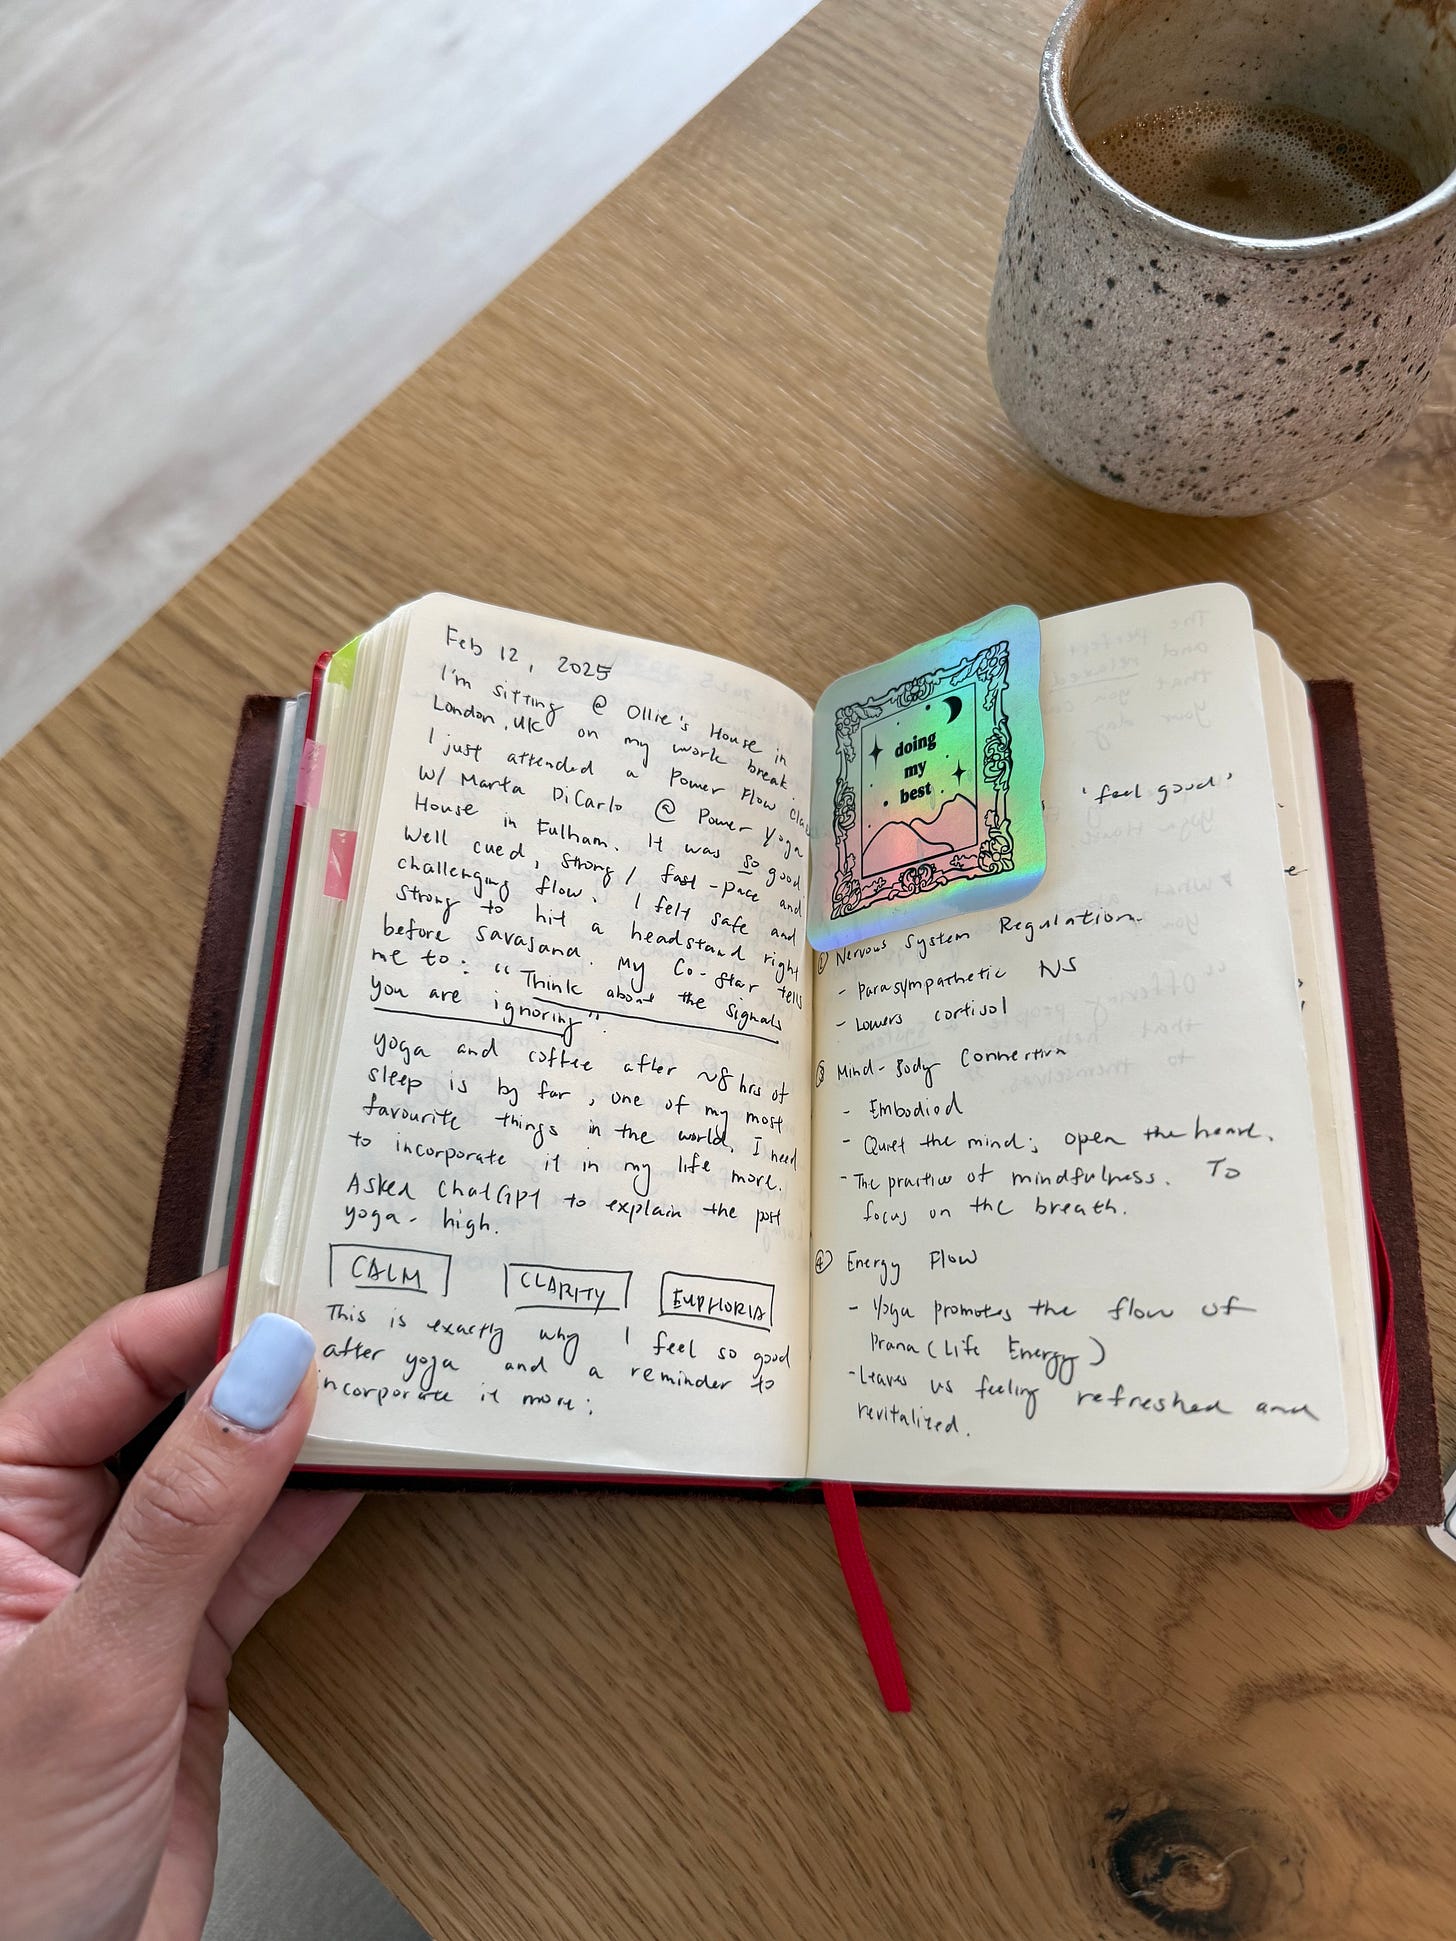 Feb 12, 2025
I'm sitting @ Ollie's House in
London, UK on my work break
I just attended a Power Flow
w/ Marta DiCarlo @ Power Yoga
House in Fulham. It was so good
Well cued, strong / fast-pace and
challenging flow. I felt safe and
strong to hit a headstand right
before savasana. My Co-Star tells
me to: "Think about the signals
you are ignoring".
yoga and coffee after ~8 hrs of
sleep is by far, one of my most
favourite things in the world. I need
to incorporate it in my life more.
Asked ChatGPT to explain the post
yoga-high.
CALM CLARITY EUPHORIA
This is exactly why I feel so good
after yoga and a reminder to
incorporate it more:
doing
my
best
'feel good'
① Nervous System Regulation.
- Parasympathetic NS
- Lowers cortisol
Mind-Body Connection
- Embodied
- Quiet the mind; open the heart.
- The practice of mindfulness. To
focus on the breath.
④ Energy Flow
- Yoga promotes the flow of
Prana (Life Energy)
- Leaves us feeling refreshed and
revitalized.